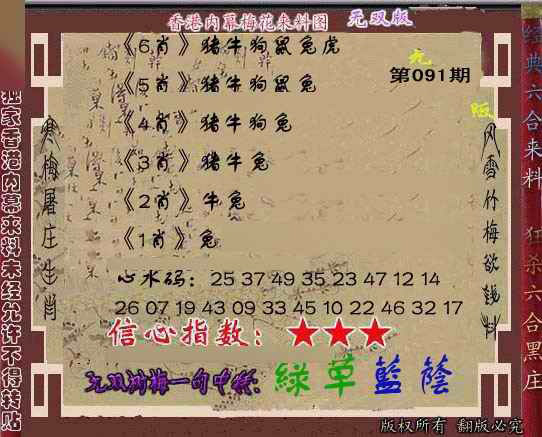 香港内幕梅花来料图 无双版
《6肖》猪牛狗鼠兔虎
无
第091期
《5肖》猪牛狗鼠兔
版
《4肖》猪牛狗兔
《3肖》猪牛兔
《2肖》牛兔
《1肖》兔
心水码：25 37 49 35 23 47 12 14
26 07 19 43 09 33 45 10 22 46 32 17
信心指数：★★★
綠草藍蔭
版权所有 翻版必究
独家香港内幕来料未经允许不得转贴
寒梅屠庄生肖
风雪竹梅欲钱料
经典六合来料 狂杀六合黑庄